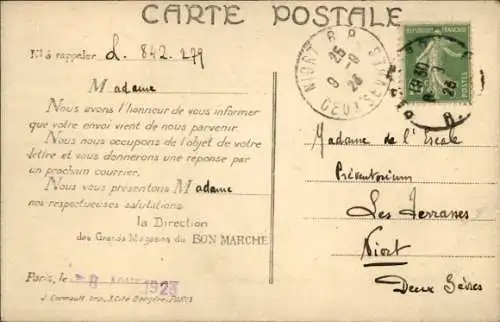 CARTE POSTALE
Nº à rappeler L. 842.279
Madame
Nous avons l'honneur de vous informer
que votre envoi vient de nous parvenir.
Nous nous occupons de l'objet de votre
lettre et vous donnerons une réponse par
un prochain courrier.
Nous vous présentons Madame
nos respectueuses salutations.
la Direction
des Grands Magasins du BON MARCHE
Paris, le 8 1923
J. Cormault, Imp., 3, Cité Bergère, PARIS
NIORT R.P. DEUX SEVRES
9 25
9-8
23
REPUBLIQUE FRANCAISE
Madame de l'Escale
Préventorium
Les Terrasses
Niort
Deux Sèvres